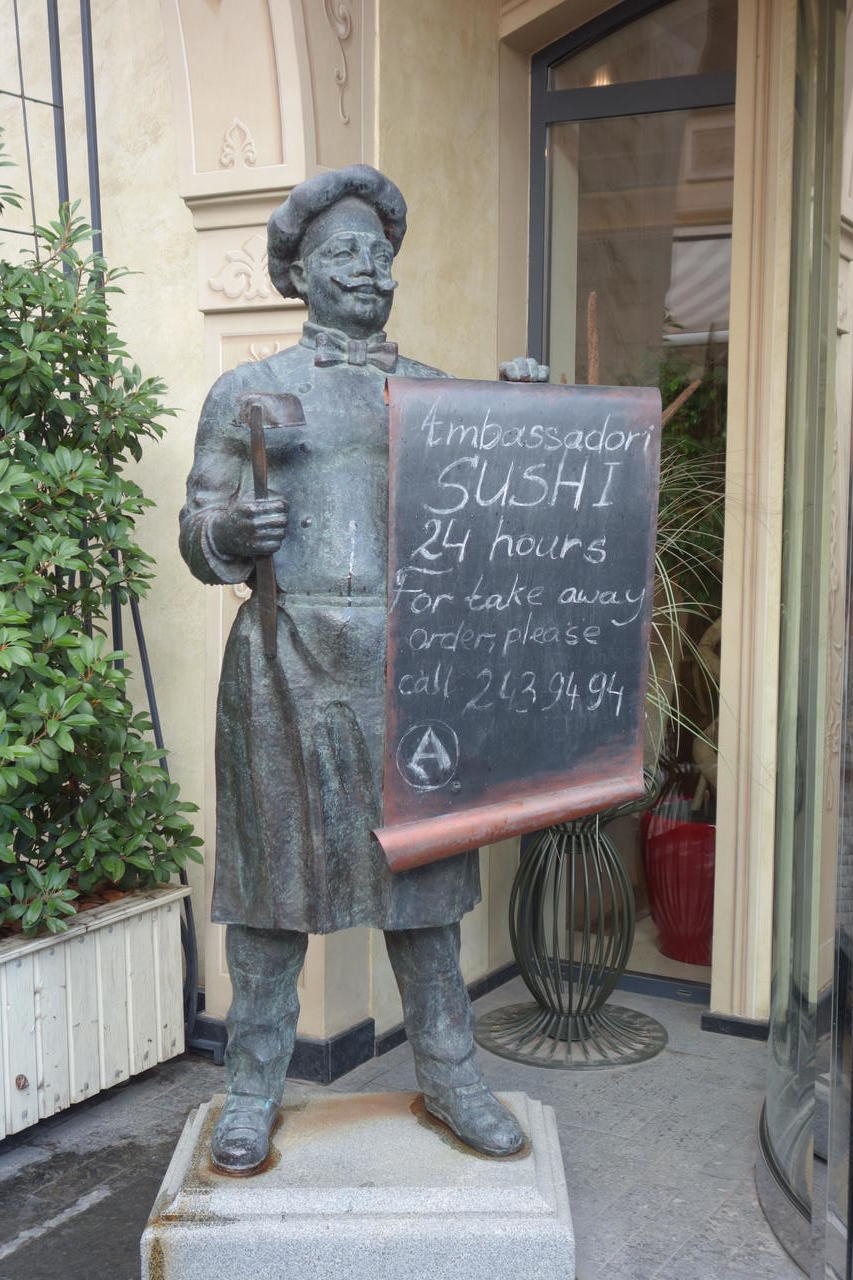 Ambassadori
SUSHI
24 hours
For take away
order, please
call 243 94 94
A